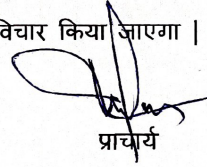 विचार किया जाएगा |
प्राचार्य